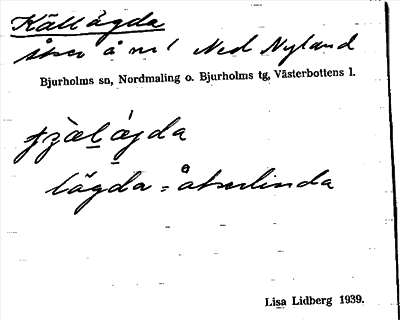 Källägda
åker å nr 1 Ned Nyland
Bjurholms sn, Nordmaling o. Bjurholms tg, Västerbottens l.
lägda = åkerlinda
Lisa Lidberg 1939.